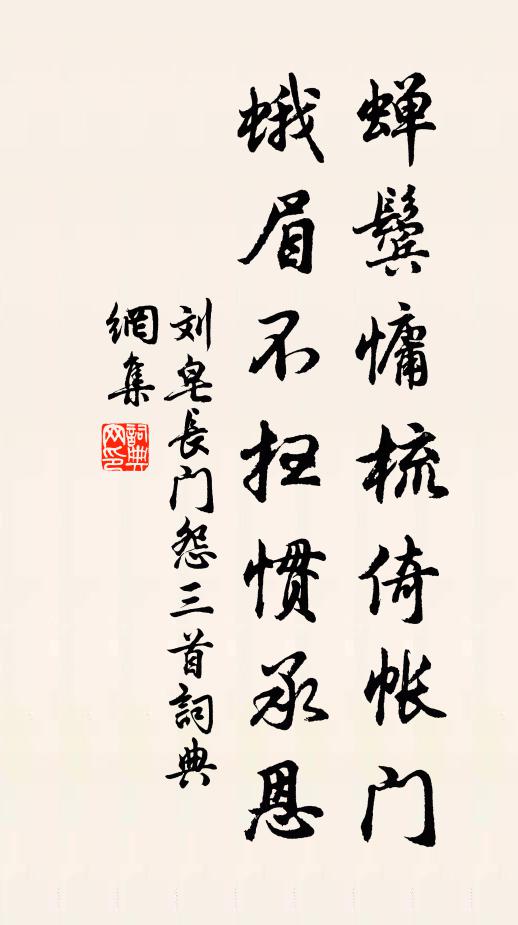 蝉鬓慵梳倚帐门
蛾眉不扫惯承恩
刘皂长门怨三首詞典
網集
詞典
网印